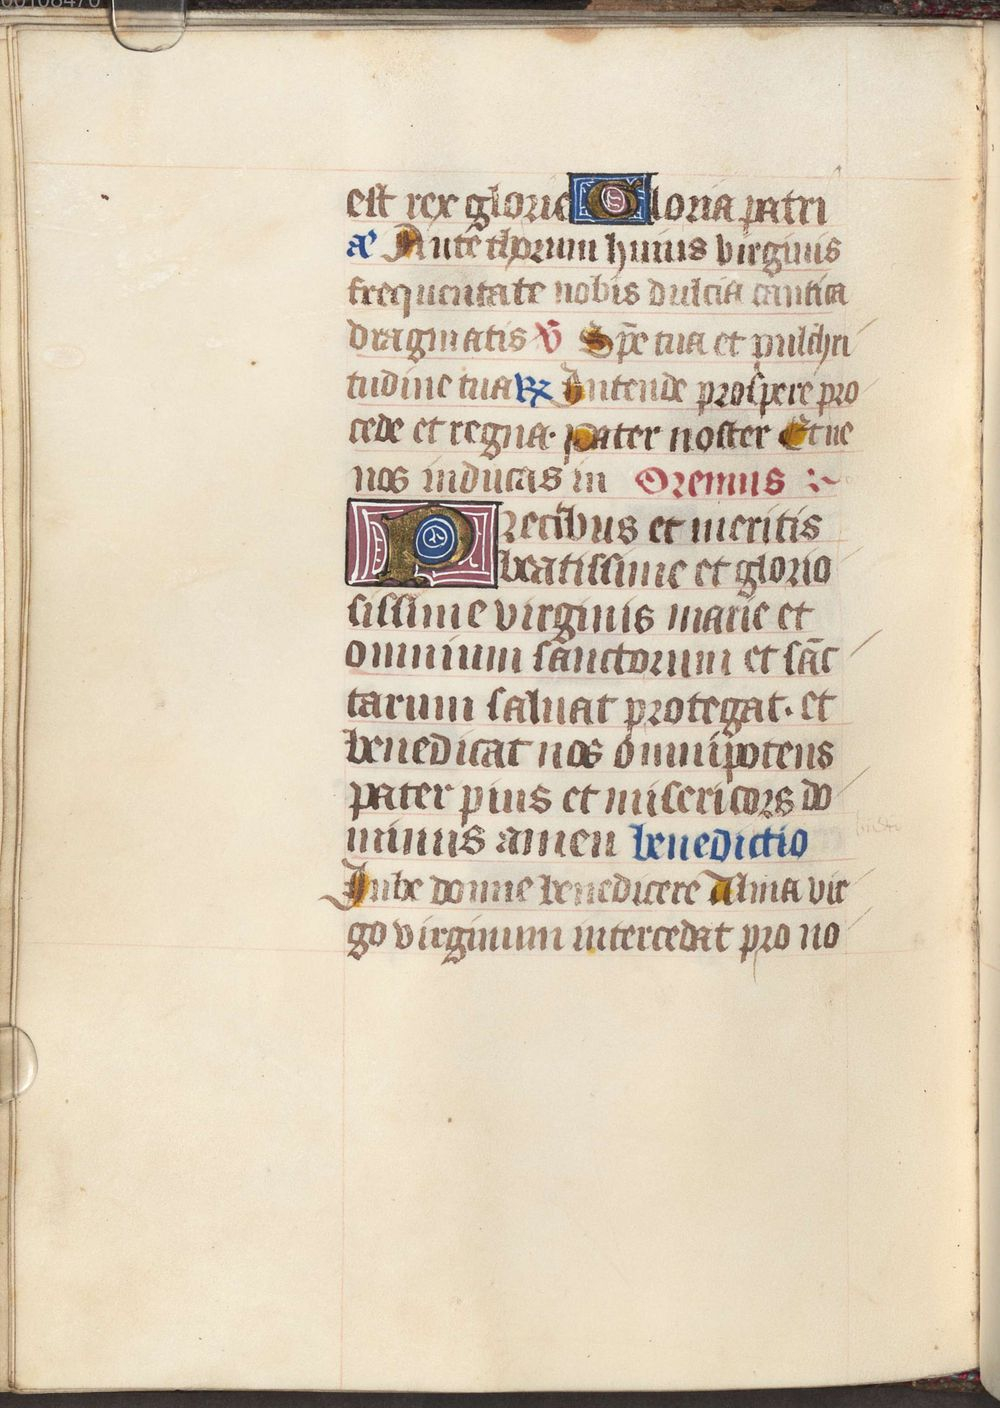 est rex glorie Gloria patri
añ Ante thorum huius virginis
frequentate nobis dulcia cantica
dragmatis ℣ Sp̄e tua et pulchri
tudine tua ℟ Intende prospere pro
cede et regna· pater noster Et ne
nos inducas in Oremus
Precibus et meritis
beatissime et glorio
sissime virginis marie et
omnium sanctorum et sāc
tarum saluat protegat· et
benedicat nos omnipotens
pater pius et misericors do
minus amen benedictio
Iube domne benedicere Alma vir
go virginum intercedat pro no